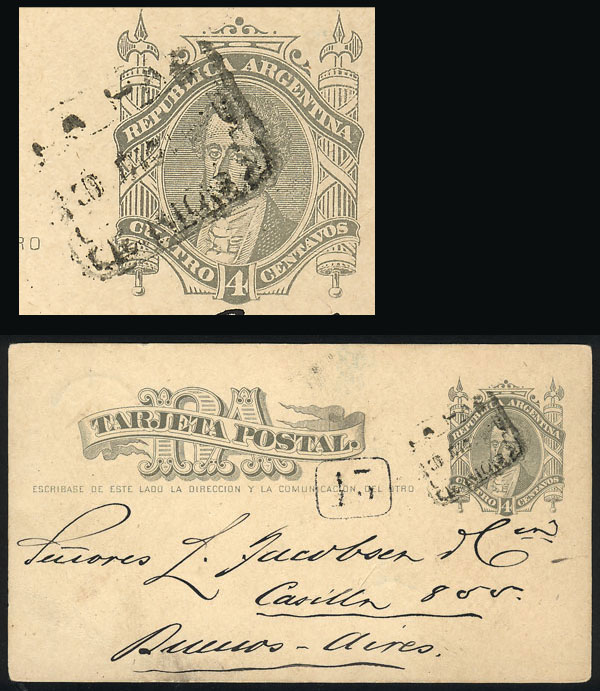 REPUBLICA ARGENTINA
RO
CUATRO 4 CENTAVOS
RA
TARJETA POSTAL.
REPUBLICA ARGENTINA
ESCRIBASE DE ESTE LADO LA DIRECCION Y LA COMUNICACION DEL OTRO
CUATRO 4 CENTAVOS
15
Señores L. Jacobsen & Cia
Casilla 855.
Buenos-Aires.